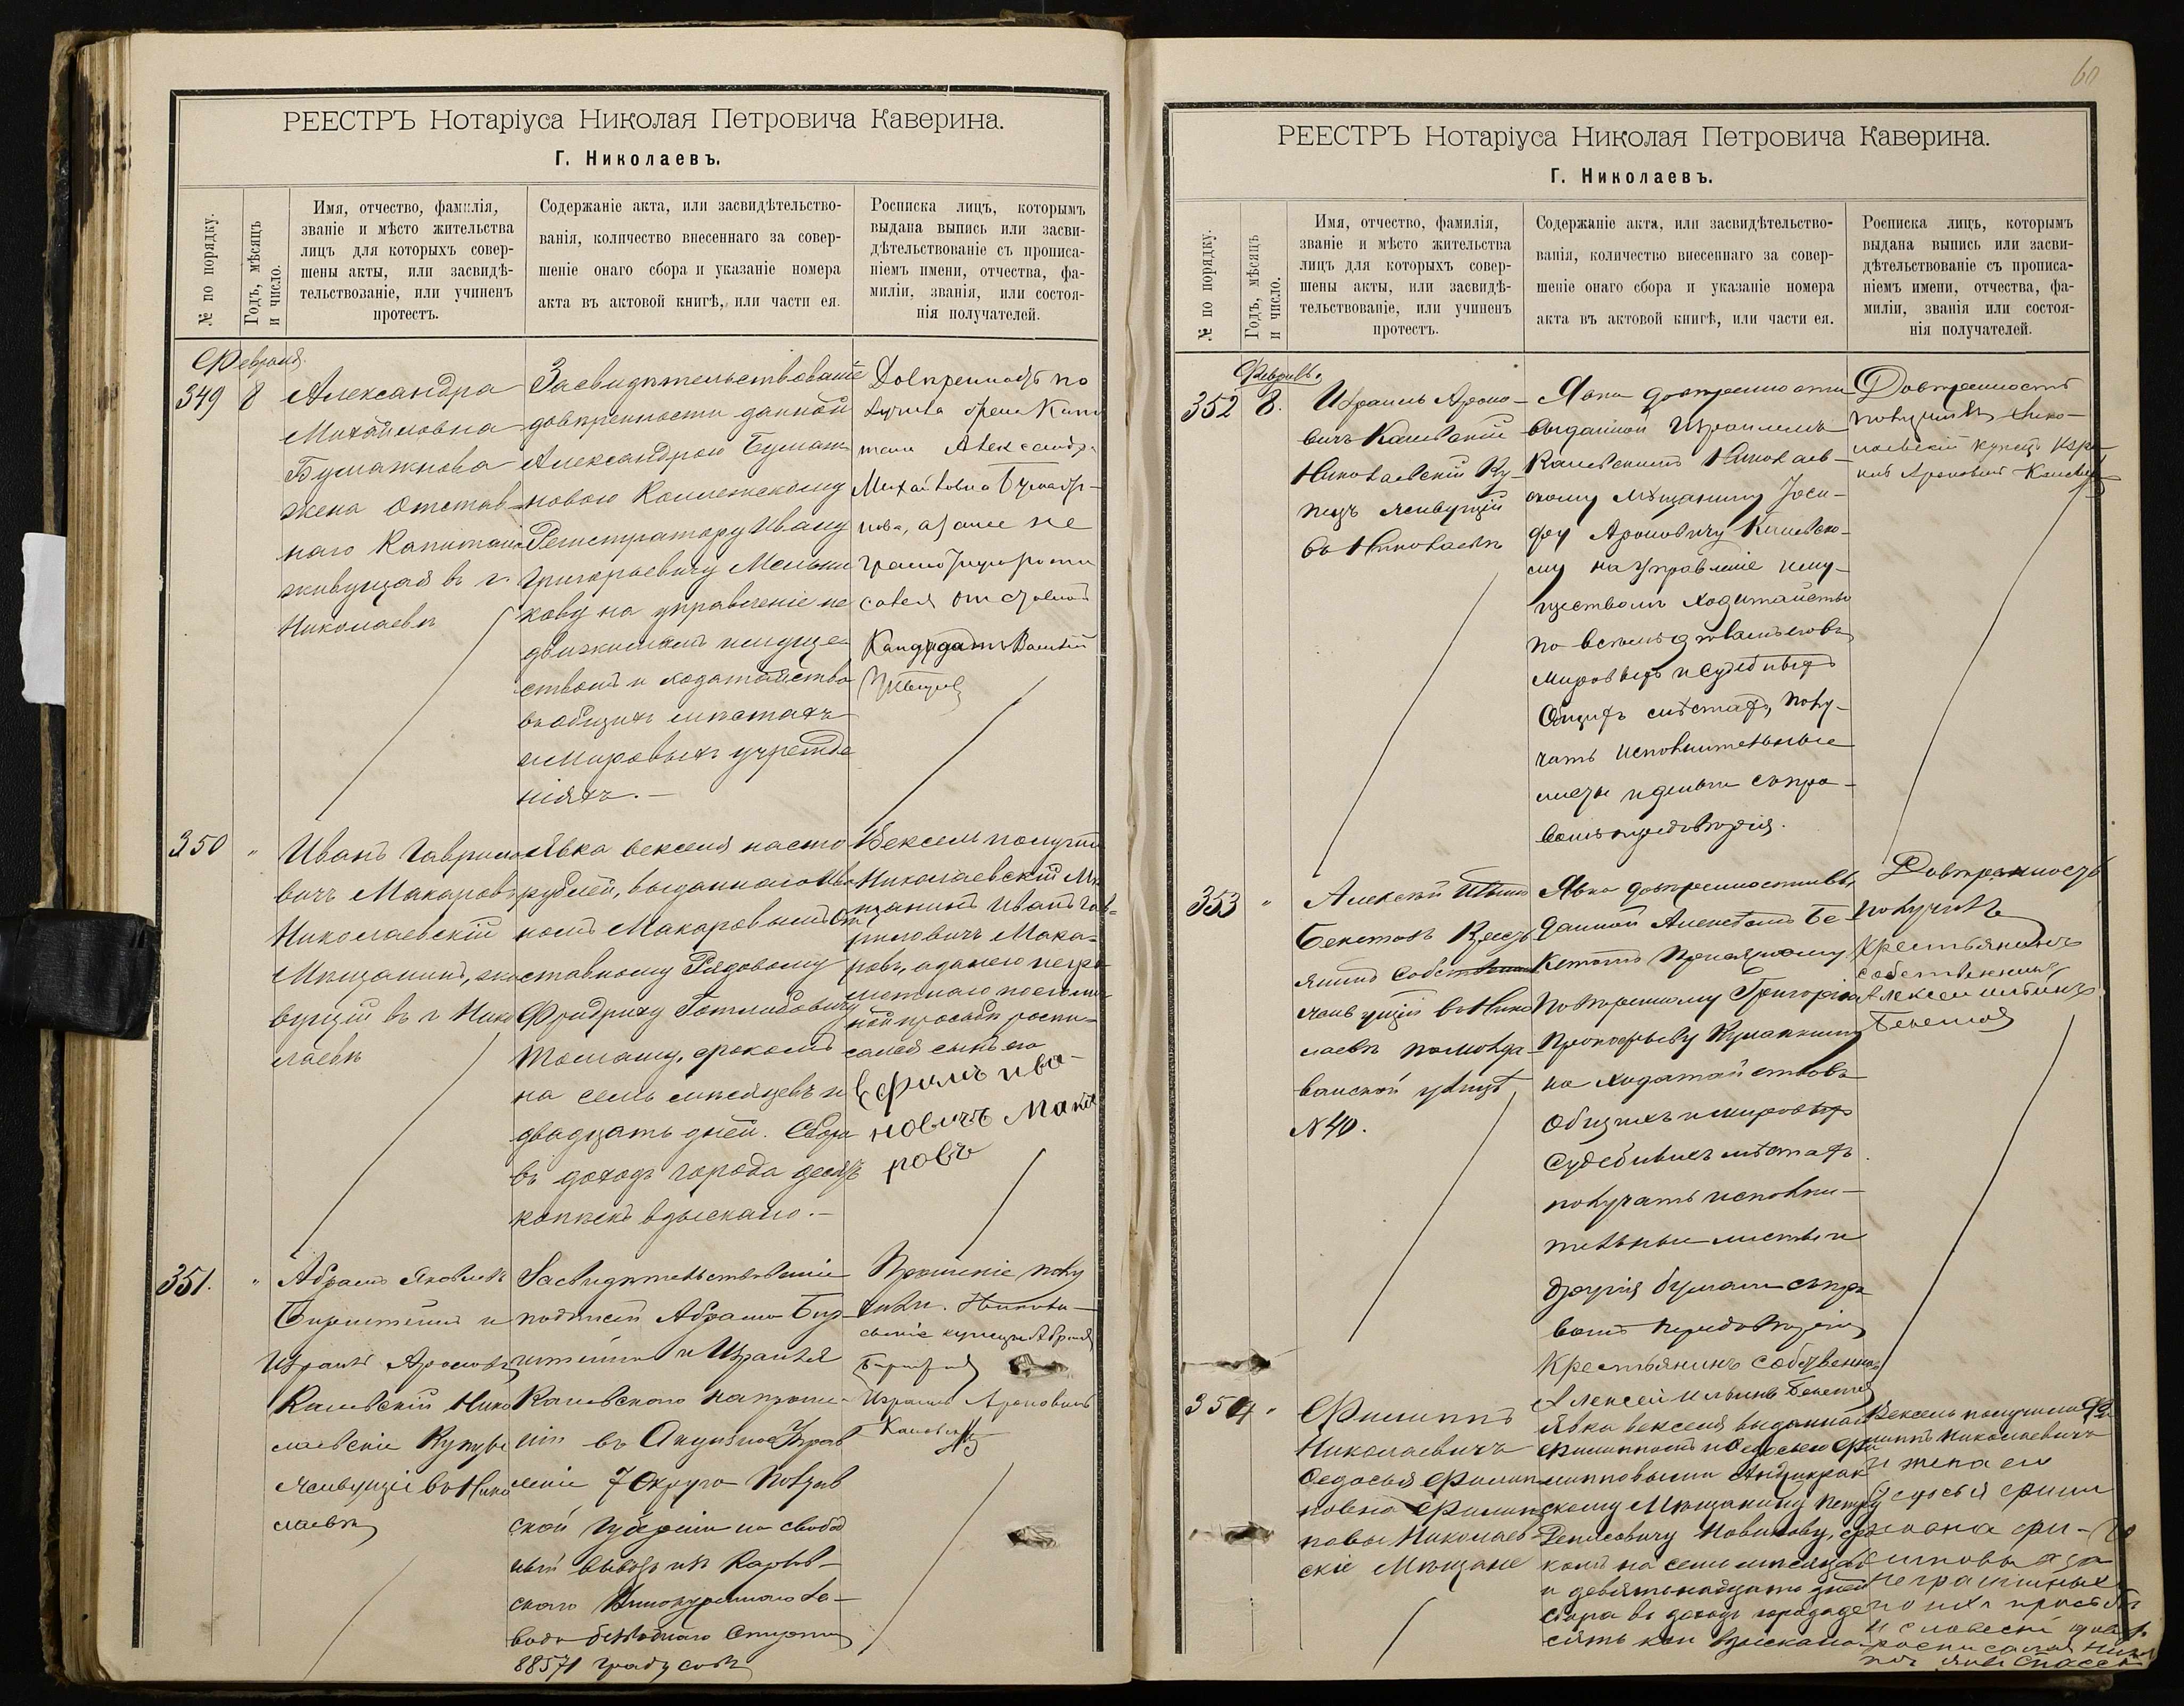 РЕЕСТРЪ Нотаріуса Николая Петровича Каверина.
Г. Николаевъ.
№ по порядку.
Годъ, мѣсяцъ
и число.
Имя, отчество, фамилія,
званіе и мѣсто жительства
лицъ для которыхъ совер-
шены акты, или засвидѣ-
тельствованіе, или учиненъ
протестъ.
Содержаніе акта, или засвидѣтельство-
ванія, количество внесеннаго за совер-
шеніе онаго сбора и указаніе номера
акта въ актовой книгѣ, или части ея.
Росписка лицъ, которымъ
выдана выпись или засви-
дѣтельствованіе съ прописа-
ніемъ имени, отчества, фа-
миліи, званія, или состоя-
нія получателей.
Февраля
349 8
Александра
Михайловна
Бумажнова
жена отстав-
наго Капитана
живущая въ г.
Николаевѣ
Засвидѣтельствованіе
довѣренности данной
Александрою Бумаж
новою Коллежскому
Регистратору Ивану
Григорьевичу Мельни
кову на управленіе не
движимымъ имуще
ствомъ и ходатайство
въ общихъ мѣстахъ
и мировыхъ учрежде
ніяхъ.—
Довѣренность по
Александра
Михайловна
Кандидатъ
350 "
Иванъ Гаврило
вичъ Макаровъ
Николаевскій
Мѣщанинъ, жи
вущій въ г Нико
лаевѣ
Явка векселя насто
рублей, выданнаго Ива
номъ Макаровымъ От
ставному Рядовому
Фридриху Готлибовичу
срокомъ
на семь мѣсяцевъ и
двадцать дней. Сбора
въ доходъ города десять
копѣекъ взыскано.—
Вексель получилъ
Николаевскій Мѣ
щанинъ Иванъ Гав-
риловичъ Мака-
ровъ, а занего негра
мотнаго по его лич
ной просьбѣ роспи-
сался сынъ его
Ефимъ Ива-
новичъ Мака
ровъ
351. "
Абрамъ
Бирштейнъ и
Израиль Ароновичъ
Каневскій Нико
лаевскіе Купцы
живущіе въ Нико
лаевѣ
Засвидѣтельствованіе
подписей Абрама Бир-
штейна и Израиля
Каневского на проше-
ніи въ Акцизное Управ
леніе 7 Округа Полтав
ской Губерніи на свобод
ный вывозъ изъ
скаго Винокуреннаго За-
вода безводнаго Спирта
88571 градусовъ
Прошеніе полу
чили. Николаев-
скіе купцы Абрамъ
Израиль Ароновичъ
Каневскій
60
РЕЕСТРЪ Нотаріуса Николая Петровича Каверина.
Г. Николаевъ.
№ по порядку.
Годъ, мѣсяцъ
и число.
Имя, отчество, фамилія,
званіе и мѣсто жительства
лицъ для которыхъ совер-
шены акты, или засвидѣ-
тельствованіе, или учиненъ
протестъ.
Содержаніе акта, или засвидѣтельство-
ванія, количество внесеннаго за совер-
шеніе онаго сбора и указаніе номера
акта въ актовой книгѣ, или части ея.
Росписка лицъ, которымъ
выдана выпись или засви-
дѣтельствованіе съ прописа-
ніемъ имени, отчества, фа-
миліи, званія или состоя-
нія получателей.
Февраль.
352 8.
Израиль Ароно-
вичъ Каневскій
Николаевскій Ку-
пецъ живущій
въ Николаевѣ
Явка довѣренности
выданной Израилемъ
Каневскимъ Николаев-
скому Мѣщанину Іоси-
фу Ароновичу Каневско-
му на управленіе иму-
ществомъ ходатайство
по всѣмъ дѣламъ его въ
Мировыхъ и Судебныхъ
Общихъ мѣстахъ, полу-
чать исполнительные
листы и деньги съ пра-
вомъ передовѣрія.
Довѣренность
получилъ Нико-
лаевскій купецъ Изра-
иль Ароновичъ Каневскій
353 "
Алексѣй Ильинъ
Бекетовъ Кресть
янинъ Собственникъ
живущій въ Нико
лаевѣ по Молда-
ванской улицѣ
№ 40.
Явка довѣренности вы
данной Алексѣемъ Бе-
кетовымъ Присяжному
Повѣренному Григорію
Прокофьеву
на ходатайство въ
Общихъ и мировыхъ
Судебныхъ мѣстахъ
получать исполни-
тельные листы и
другія бумаги съ пра
вомъ передовѣрія
Крестьянинъ собственникъ
Алексей Ильинъ Бекетов
Довѣренность
получилъ
крестьянинъ
собственникъ
Алексеи ильинъ
Бекетов
354 "
Филиппъ
Николаевичъ
Ѳедосья Филип
повна Филип
повы Николаев
скіе Мѣщане
Явка векселя выданнаго
Филиппомъ и Ѳедосьею Фи
липповыми
скому Мѣщанину Петру
Денисовичу Новикову, сро
комъ на семь мѣсяцевъ
и девятьнадцать дней
сбора въ доходъ города де
сять коп взыскано.
Вексель получили Фи
липпъ Николаевичъ
и жена его
Ѳедосья Фили
повна Фи-
липовы а за
неграмотныхъ
по ихъ просьбѣ
росписался